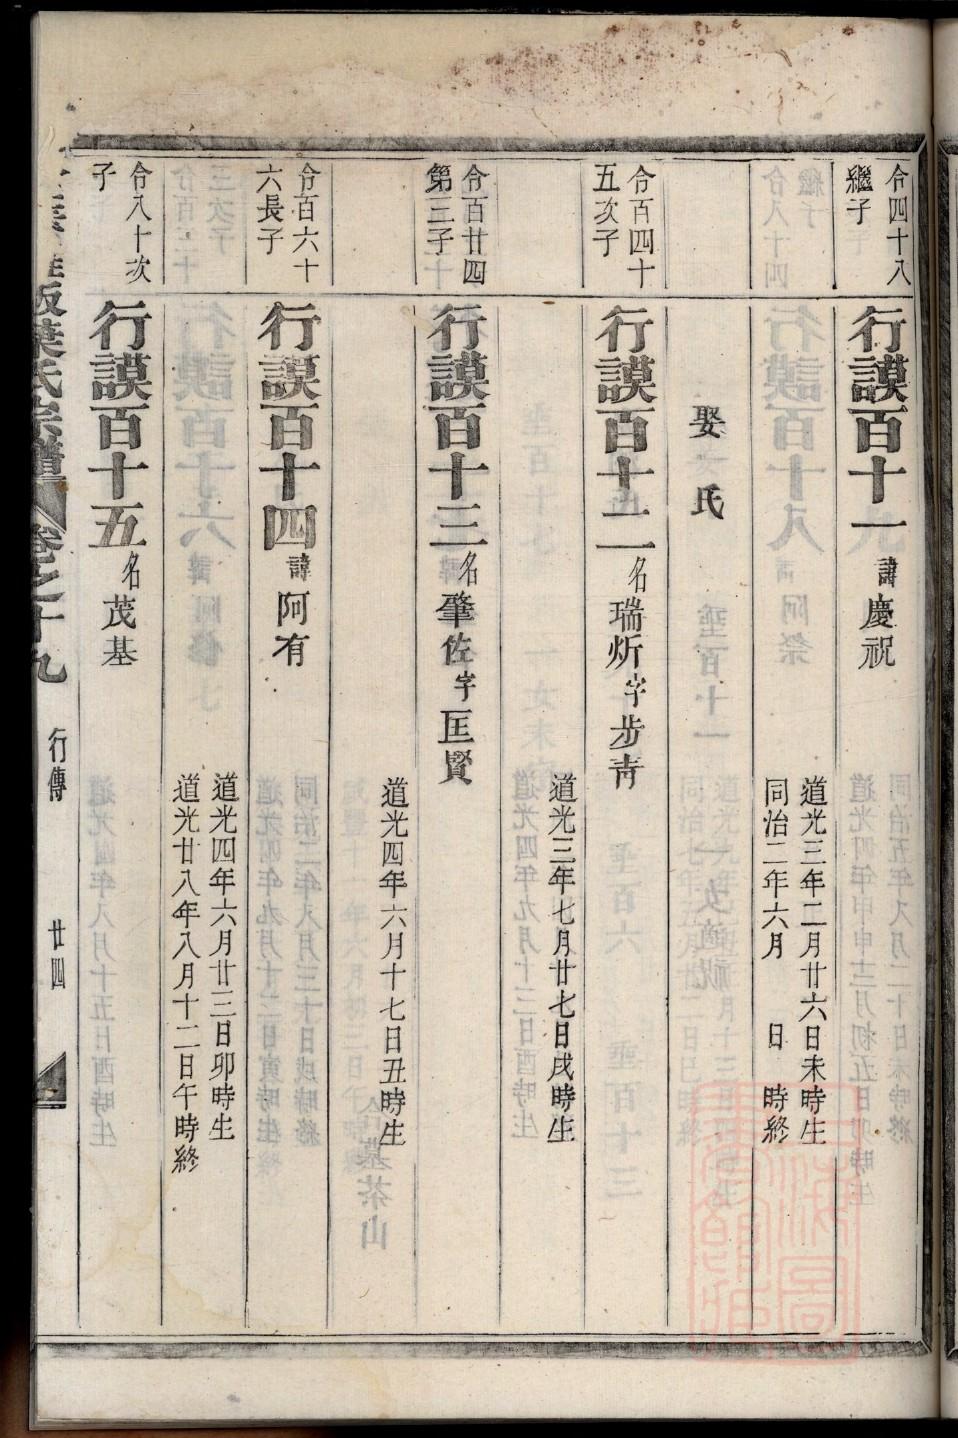 令四十八
繼子
行謨百十一 諱慶祝
道光三年二月廿六日未時生
同治二年六月 日 時終
娶 氏
令百四十
五次子
行謨百十二 名瑞炘字步青
道光三年七月廿七日戌時生
令百廿四
第三子
行謨百十三 名肇佐字匡賢
道光四年六月十七日丑時生
令百六十
六長子
行謨百十四 諱阿有
道光四年六月廿三日卯時生
道光廿八年八月十二日午時終
令八十次
子
行謨百十五 名茂基
葉氏宗譜 卷之十九 行傳 廿四